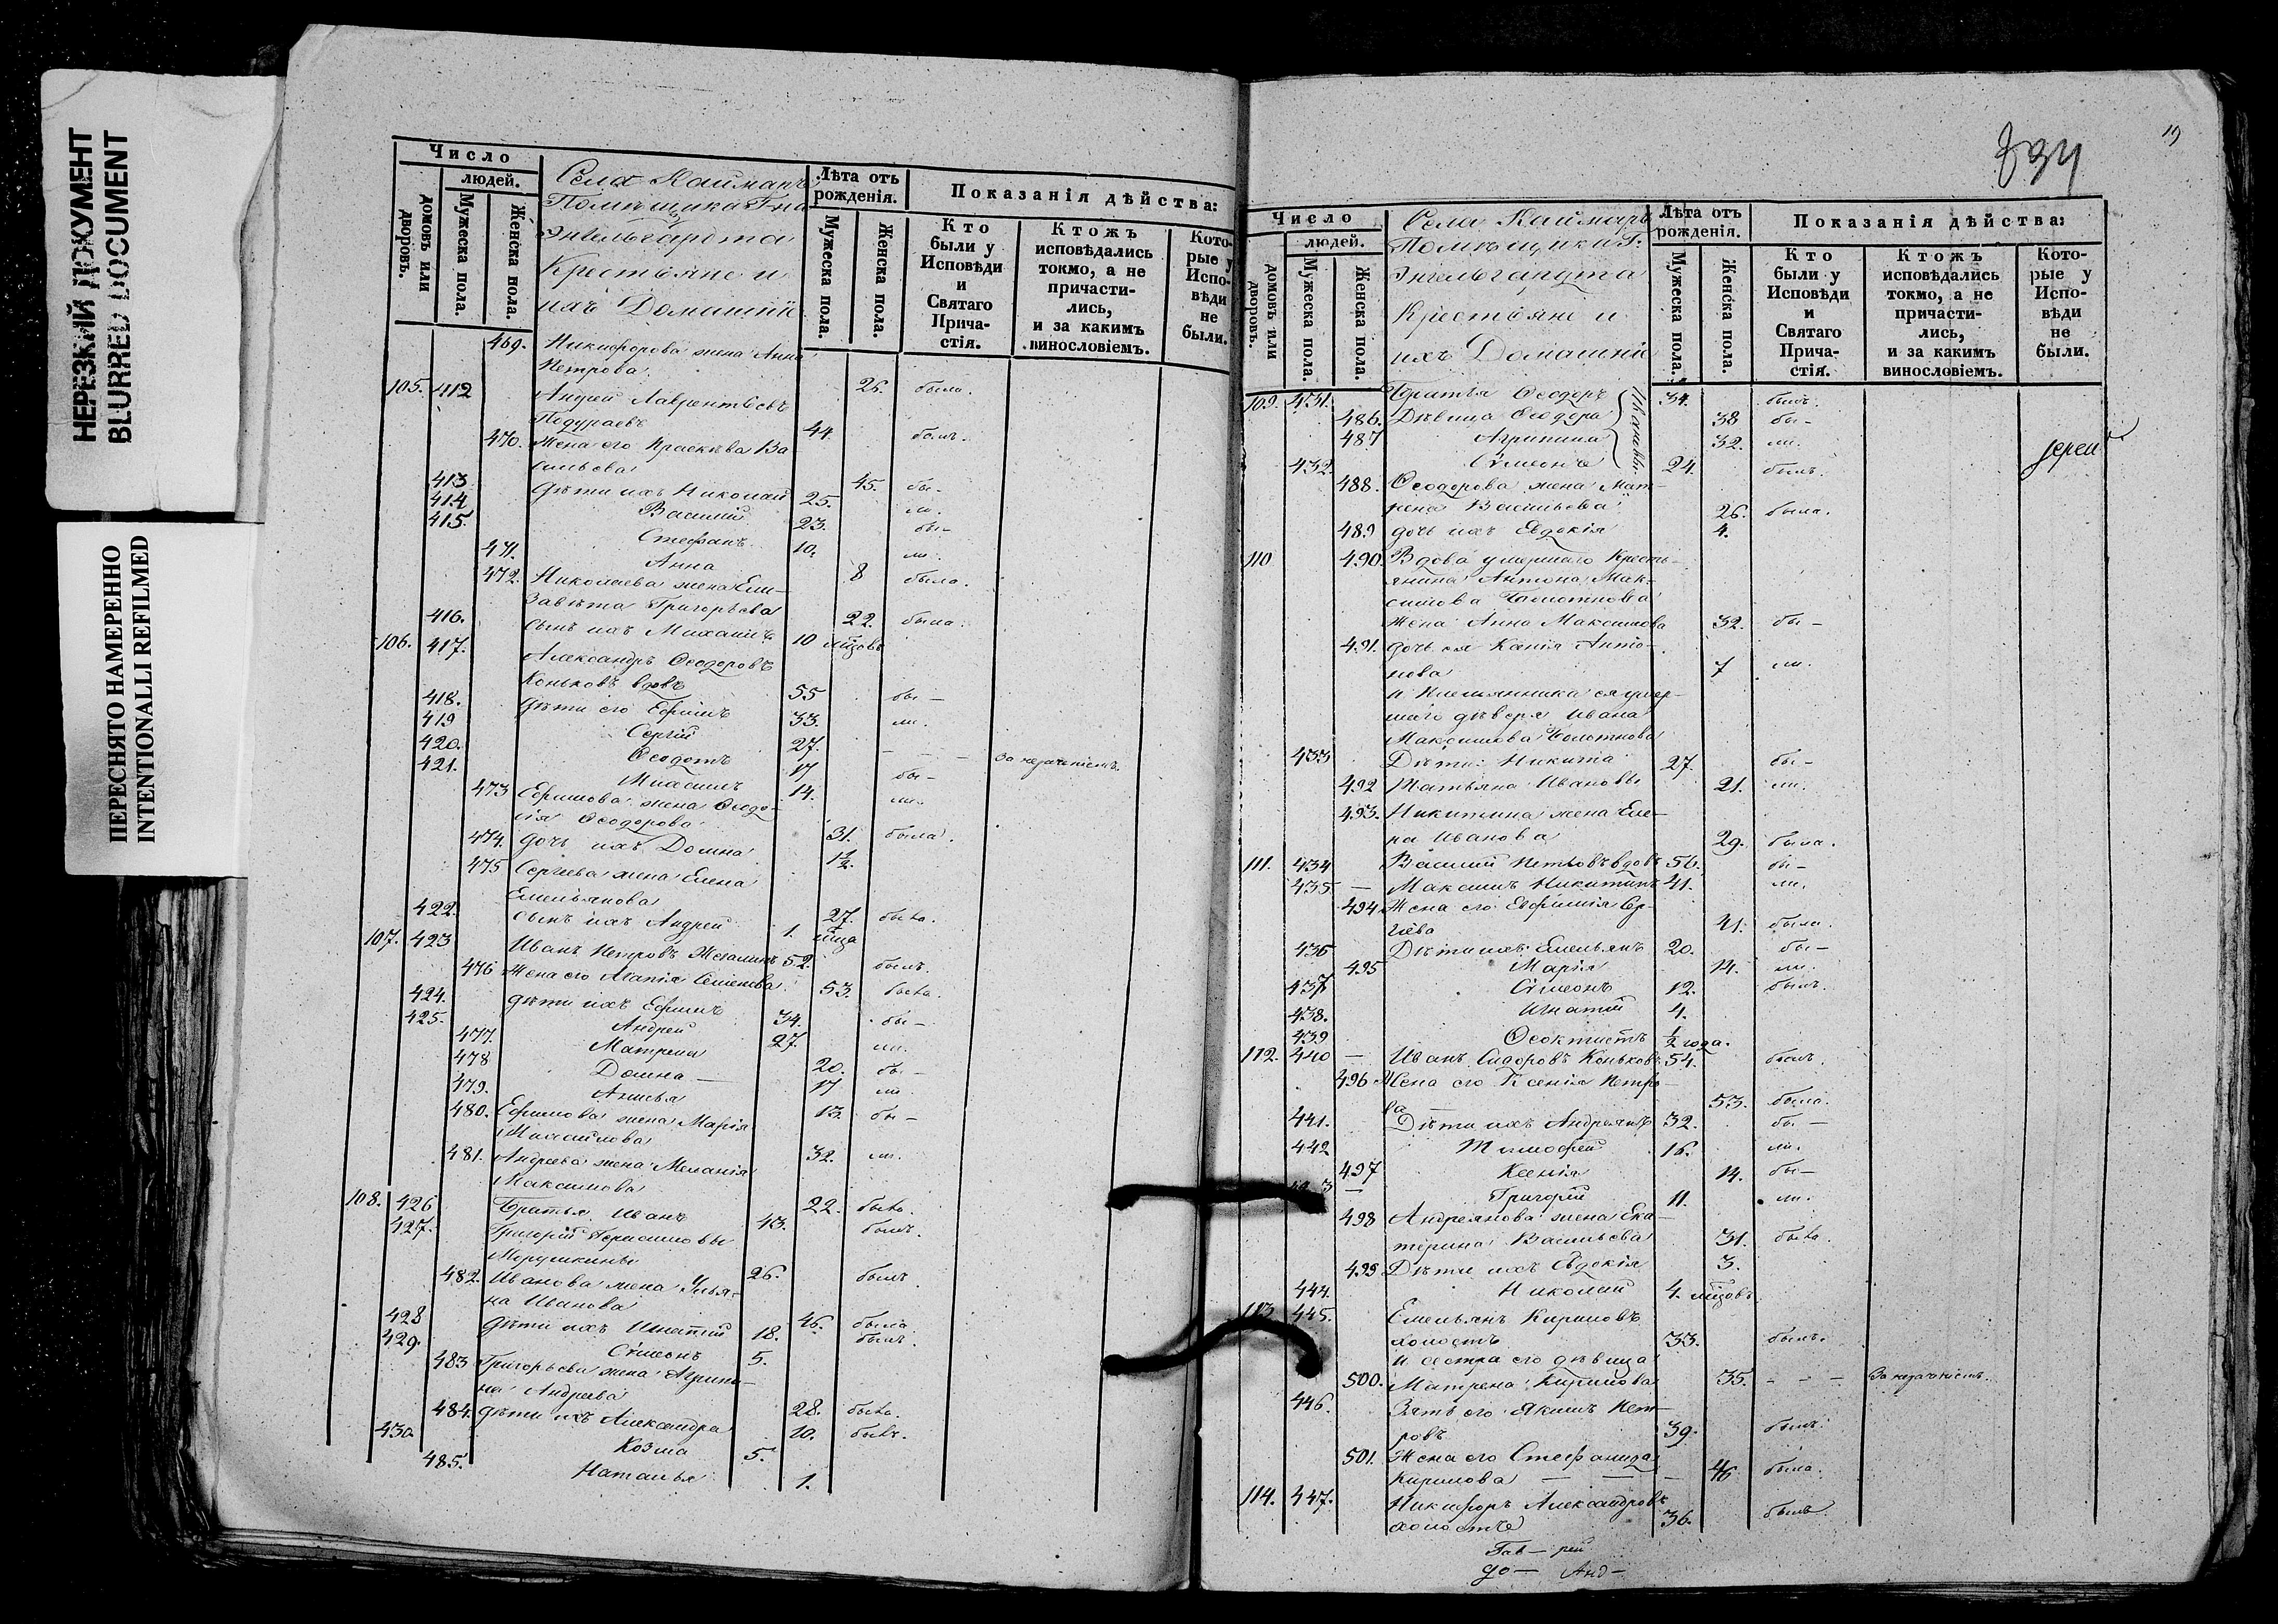 НЕРЕЗКИЙ ДОКУМЕНТ
BLURRED DOCUMENT
ПЕРЕСНЯТО НАМЕРЕННО
INTENTIONALLI REFILMED
Число
людей.
домовъ или дворовъ.
Мужеска пола.
Женска пола.
Села Каймаръ
Помѣщика Гна
Энгельгардта
Крестьяне и
ихъ Домашніе
Лѣта отъ рожденія.
Мужеска пола.
Женска пола.
Показанія дѣйства:
Кто были у Исповѣди и Святаго Прича-стія.
Ктожъ исповѣдались токмо, а не причасти-лись, и за какимъ винословіемъ.
Кото-рые у Испо-вѣди не были.
469. Никифорова жена Анна
Петрова 26. была.
105. 412 Андрей Лаврентьевъ
44. былъ.
470. Жена его Прасковья Ва
сильева 45. бы-
413 дѣти ихъ Николай 25. ли.
414 Василий 23. бы-
415. Стефанъ 10. ли
471. Анна 8 была.
472. Николаева жена Ели-
завѣта Григорьева 22. была.
416. сынъ ихъ Михаилъ 10 мцовъ
106. 417. Александръ Ѳеодоровъ
Коньковъ вдовъ 55 бы-
418. дѣти его Ефимъ 33. ли.
419 Сергій 27. - - за нераченіемъ.
420. Ѳеодотъ 17 бы-
421. 14. ли.
473 Ефимова жена Ѳеодо-
сія Ѳеодорова 31. была.
474. дочь ихъ Домна 1½
475 Сергѣева жена Елена
Емельянова 27. была.
422. сынъ ихъ Андрей 1. мца
107. 423 Иванъ Петровъ 52. былъ.
476 Жена его Агапія Семенова 53. была.
424. дѣти ихъ Ефимъ 34. бы-
425. Андрей 27. ли.
477. Матрена 20. бы-
478 Домна 17 ли
479. Анисья 13. бы-
480. Ефимова жена Марія
32. ли.
481. Андреева жена Меланія
Максимова 22. была.
108. 426 Братья Иванъ 43. былъ.
427. Григорій Герасимовы
26. былъ
482. Иванова жена Улья-
на Иванова 46. была
428 дѣти ихъ Игнатій 18. былъ.
429. Сѵмеонъ 5.
483 Григорьева жена Агрипи-
на Андреева 28. была.
484. дѣти ихъ Александра 10. была.
430 Козма 5.
485. Наталья 1.
19
Число
людей.
домовъ или дворовъ.
Мужеска пола.
Женска пола.
Села Каймаръ
Помѣщика Г:
Энгельгардта
Крестьяне и
ихъ Домашніе
Лѣта отъ рожденія.
Мужеска пола.
Женска пола.
Показанія дѣйства:
Кто были у Исповѣди и Святаго Прича-стія.
Ктожъ исповѣдались токмо, а не причасти-лись, и за какимъ винословіемъ.
Кото-рые у Испо-вѣди не были.
109. 431. Братья Ѳеодоръ 34. былъ.
486. Дѣвица Ѳеодора 38 бы-
487 Агрипина 32. ли.
432. Сѵмеонъ 24. былъ.
488. Ѳеодорова жена Мат-
рена Васильева 26. была.
489 дочь ихъ Евдокія 4.
іерей
110 490 Вдова умершаго Кресть-
янина Антона Мак-
симова
жена Анна Максимова 32. бы-
491. дочь ея Ксенія Анто-
нова 7 ли.
и племянника ея умер-
шаго деверя Ивана
Максимова
433 Дѣти: Никита 27. бы-
492 Татьяна Ивановы 21. ли.
493. Никитина жена Еле-
на Иванова 29. была.
111. 434 Василий Петровъ вдовъ 56. бы-
435. - Максимъ Никитинъ 41. ли.
494 Жена его Евфимія Сер-
гѣева 41. была.
436 Дѣти ихъ: Емельянъ 20. бы-
495 Марія 14. ли.
437 Сѵмеонъ 12. былъ.
438. Игнатій 4.
439 Ѳеоктистъ ½ года.
112. 440 - Иванъ Сидоровъ Коньковъ 54. былъ.
496 Жена его Ксенія Петро-
ва 53. была.
441. Дѣти ихъ Андреянъ 32. бы-
442 Тимофей 16. ли.
497 Ксенія 14. бы-
443 - Григорій 11. ли.
498 Андреянова жена Ека-
терина Васильева 31. была.
499 Дѣти ихъ Евдокія 3.
444. Николай 4. мцовъ
113 445. Емельянъ Кириловъ
холостъ 33. былъ.
и сестра его дѣвица
500. Матрена Кирилова 35. - - - за нераченіемъ.
446. Зять его Якимъ Пет-
ровъ 39. былъ
501. Жена его Стефанида
Кирилова 46 была.
114. 447. Никифоръ Александровъ
холостъ 36. былъ.